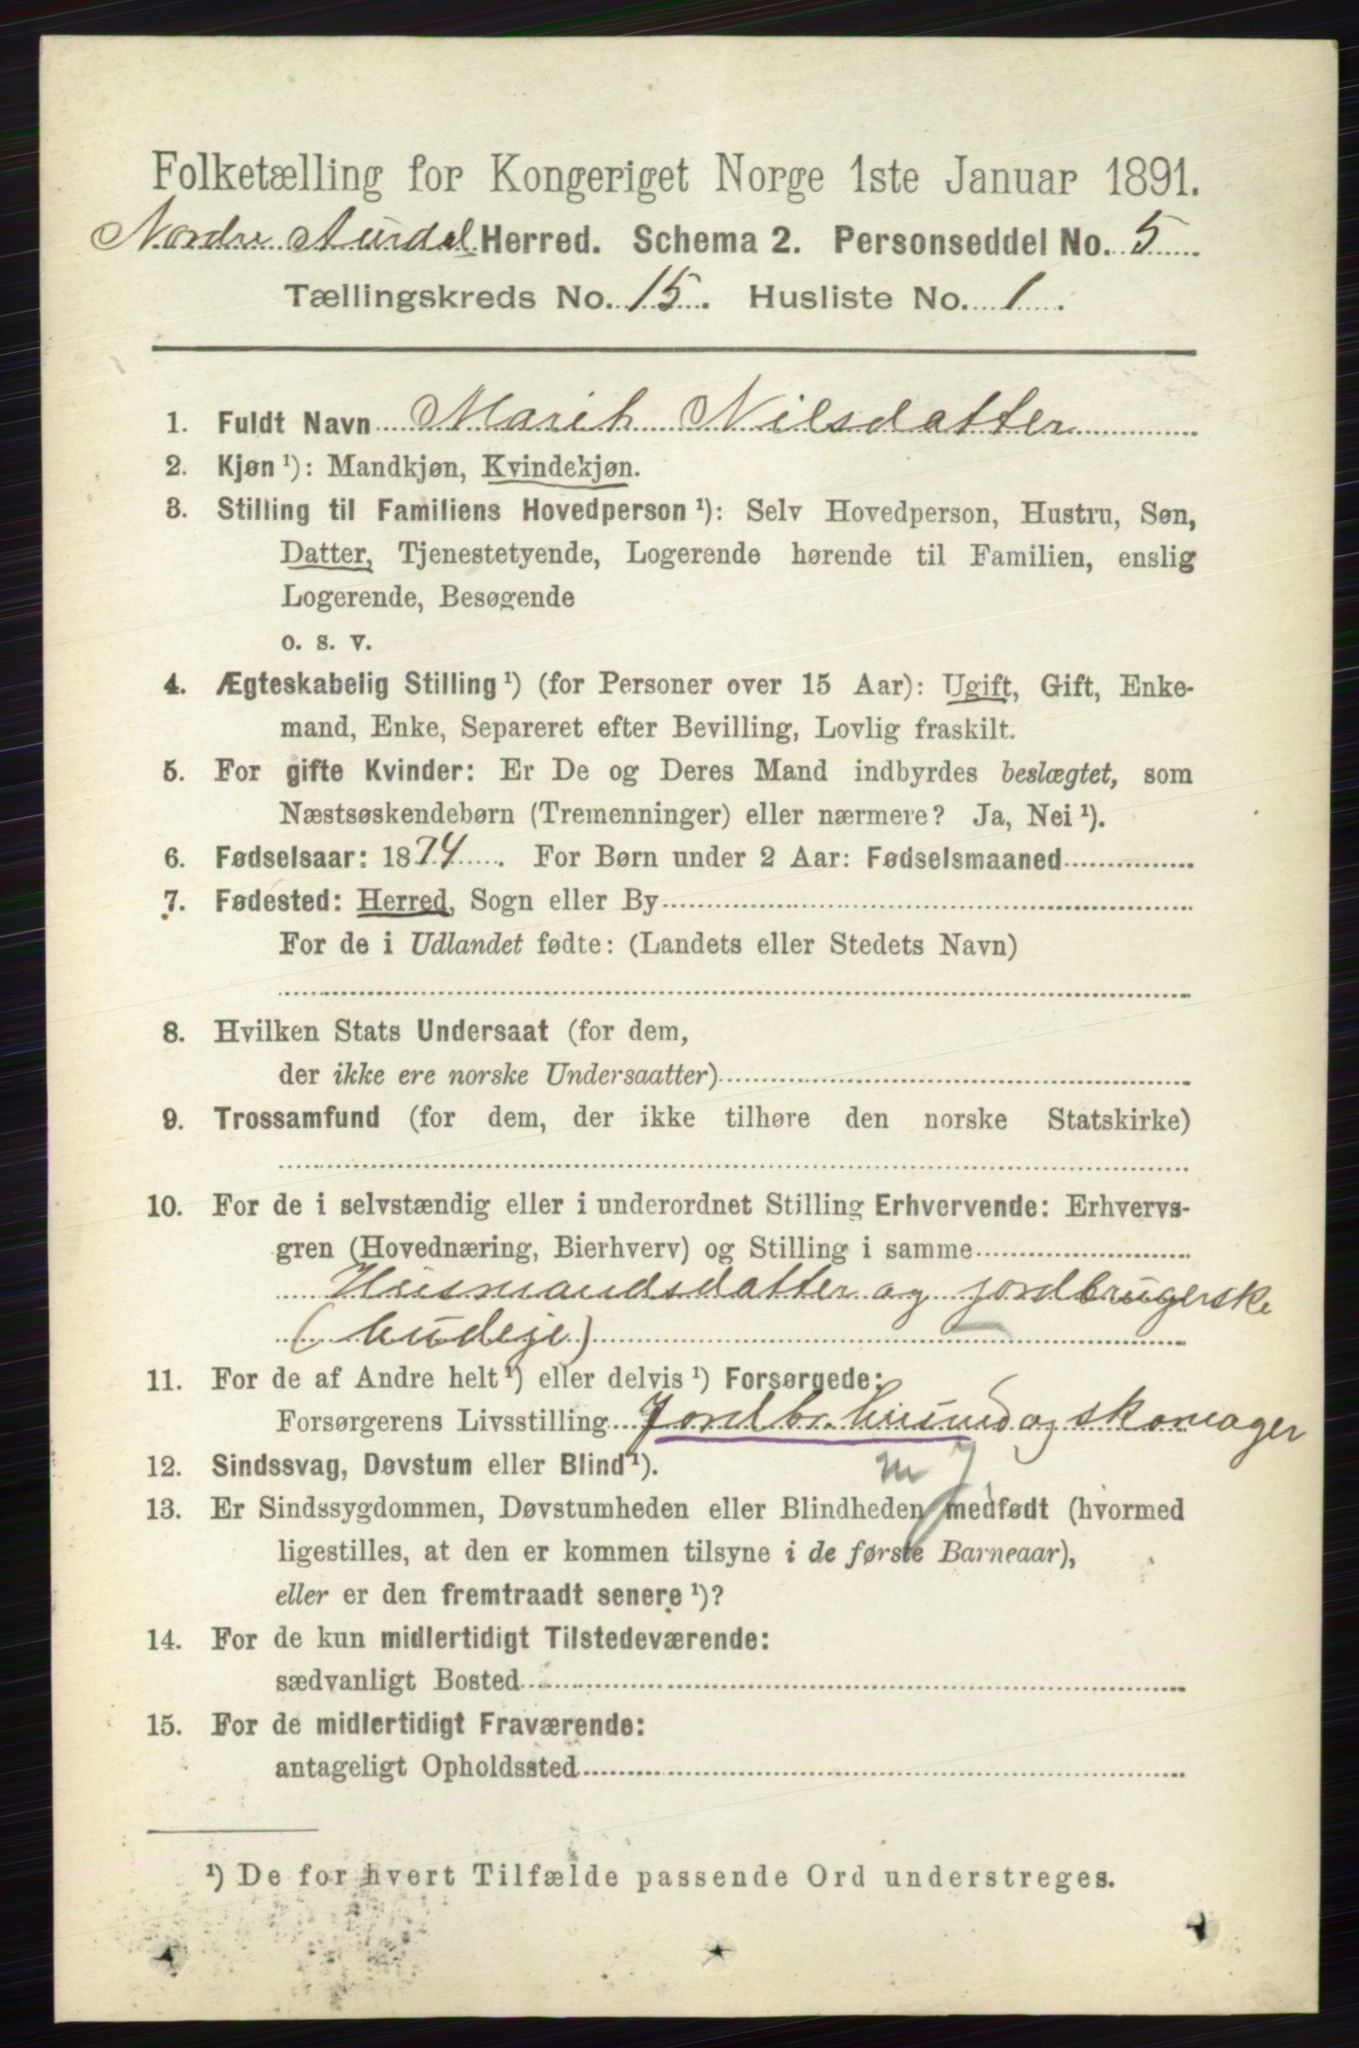 Folketælling for Kongeriget Norge 1ste Januar 1891.
Nordre Aurdal Herred. Schema 2. Personseddel No. 5
Tællingskreds No. 15. Husliste No. 1.
1. Fuldt Navn Marit Nilsdatter
2. Kjøn ¹): Mandkjøn, Kvindekjøn.
3. Stilling til Familiens Hovedperson ¹): Selv Hovedperson, Hustru, Søn,
Datter, Tjenestetyende, Logerende hørende til Familien, enslig
Logerende, Besøgende
o. s. v.
4. Ægteskabelig Stilling ¹) (for Personer over 15 Aar): Ugift, Gift, Enke-
mand, Enke, Separeret efter Bevilling, Lovlig fraskilt.
5. For gifte Kvinder: Er De og Deres Mand indbyrdes beslægtet, som
Næstsøskendebørn (Tremenninger) eller nærmere? Ja, Nei ¹).
6. Fødselsaar: 1874. For Børn under 2 Aar: Fødselsmaaned
7. Fødested: Herred, Sogn eller By
For de i Udlandet fødte: (Landets eller Stedets Navn)
8. Hvilken Stats Undersaat (for dem,
der ikke ere norske Undersaatter)
9. Trossamfund (for dem, der ikke tilhøre den norske Statskirke)
10. For de i selvstændig eller i underordnet Stilling Erhvervende: Erhvervs-
gren (Hovednæring, Bierhverv) og Stilling i samme
Husmandsdatter og jordbrugerske
(budeje)
11. For de af Andre helt ¹) eller delvis ¹) Forsørgede:
Forsørgerens Livsstilling Jordbr. husmd og skomager
12. Sindssvag, Døvstum eller Blind ¹).
13. Er Sindssygdommen, Døvstumheden eller Blindheden medfødt (hvormed
ligestilles, at den er kommen tilsyne i de første Barneaar),
eller er den fremtraadt senere ¹)?
14. For de kun midlertidigt Tilstedeværende:
sædvanligt Bosted
15. For de midlertidigt Fraværende:
antageligt Opholdssted
¹) De for hvert Tilfælde passende Ord understreges.